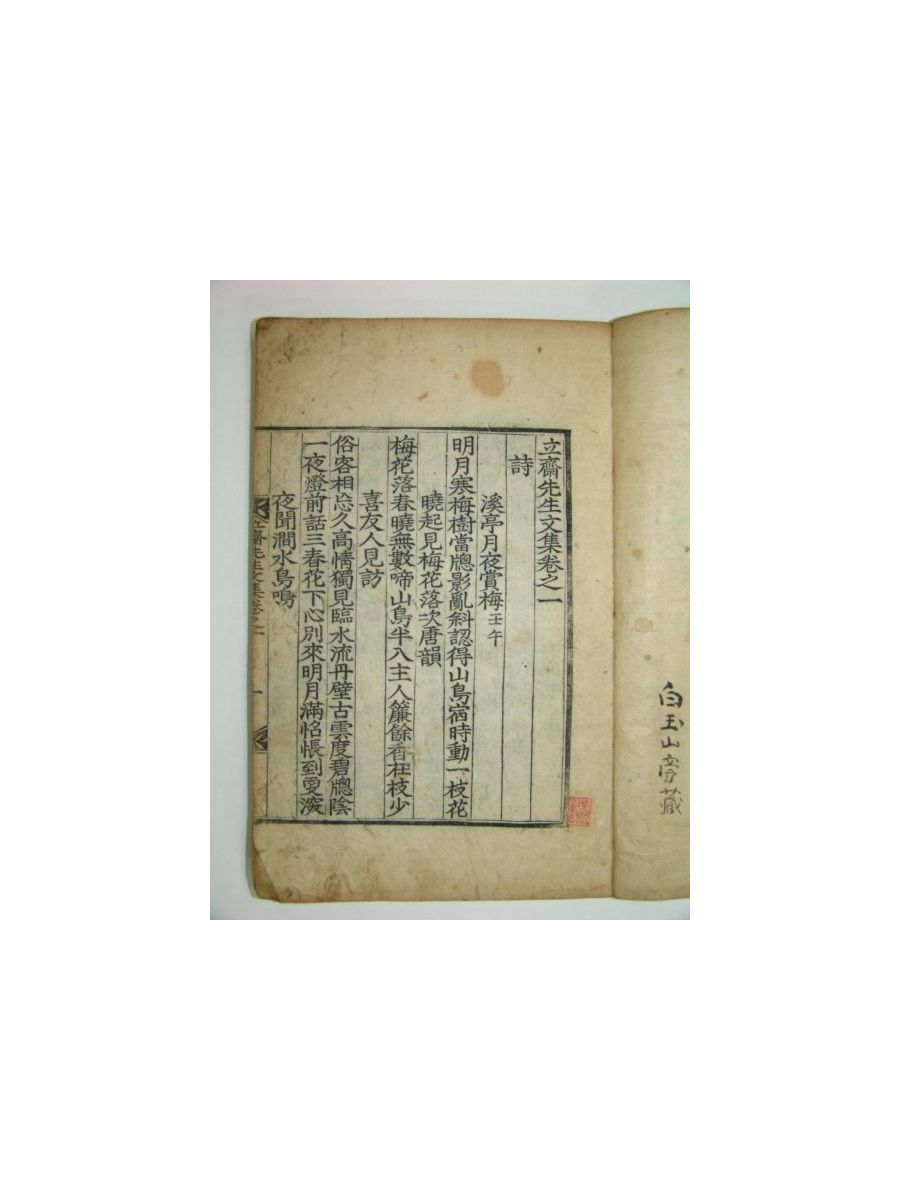 立齋先生文集卷之一
詩
溪亭月夜賞梅 壬午
明月寒梅樹當牕影亂斜認得山鳥宿時動一枝花
曉起見梅花落次唐韻
梅花落春曉無數啼山鳥半入主人簾餘香在枝少
喜友人見訪
俗客相忘久高情獨見臨水流丹壁古雲度碧牕陰
一夜燈前話三春花下心別來明月滿怊悵到更深
夜聞澗水鳥鳴
立齋先生文集卷之一
一
白玉山房藏